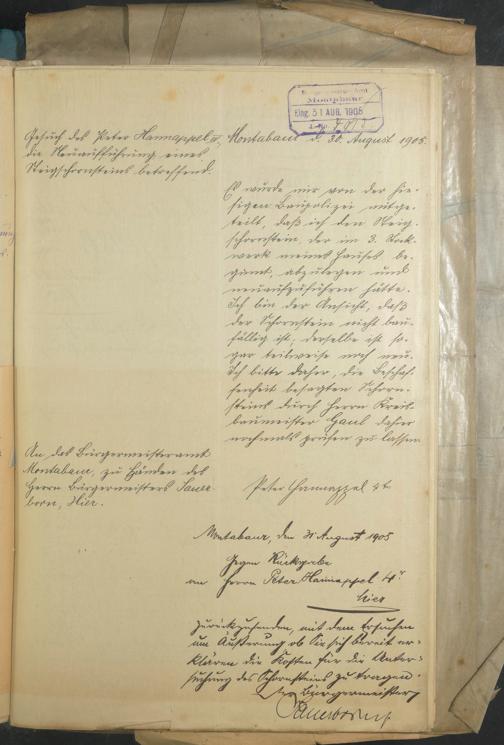 Bürgermeisteramt
Montabaur
Eing. 31 AUG. 1905
Gesuch des Peter Hannappel IV,
die Neuaufführung eines
Steigschornsteins betreffend.
Montabaur d. 30. August 1905.
Es wurde mir von der hie-
sigen Baupolizei mitge-
teilt, daß ich den Steig-
schornstein, der im 3. Stock-
werk meines Hauses be-
ginnt, abzulegen und
neuaufzuführen hätte.
Ich bin der Ansicht, daß
der Schornstein nicht bau-
fällig ist, derselbe ist so-
gar teilweise noch neu.
Ich bitte daher, die Beschaf-
fenheit besagten Schorn-
steins durch Herrn Kreis-
baumeister Gaul daher
nochmals prüfen zu lassen
An das Bürgermeisteramt
Montabaur, zu Händen des
Herrn Bürgermeisters Sauer-
born, Hier.
Peter Hannappel 4t
Montabaur, den 31 August 1905
Gegen Rückgabe
an Herrn Peter Hannappel 4r
hier
zurückzusenden, mit dem Ersuchen
um Äußerung ob Sie sich bereit er-
klären die Kosten für die Unter-
suchung des Schornsteins zu tragen.
Der Bürgermeister
Sauerborn